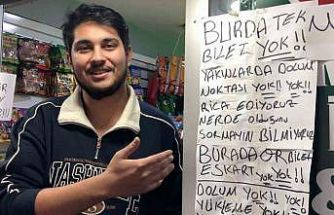 BURDA TEK
BİLET YOK!!
YAKINLARDA DOLUM
NOKTASI YOK!! YOK!
RİCA EDİYORUZ
NERDE OLDUĞUNU
SORMAYIN BİLMİYORUZ
BURADA
ESKART YOK YOK!!
DOLUM YOK!! YOK
YÜKLEME YOK